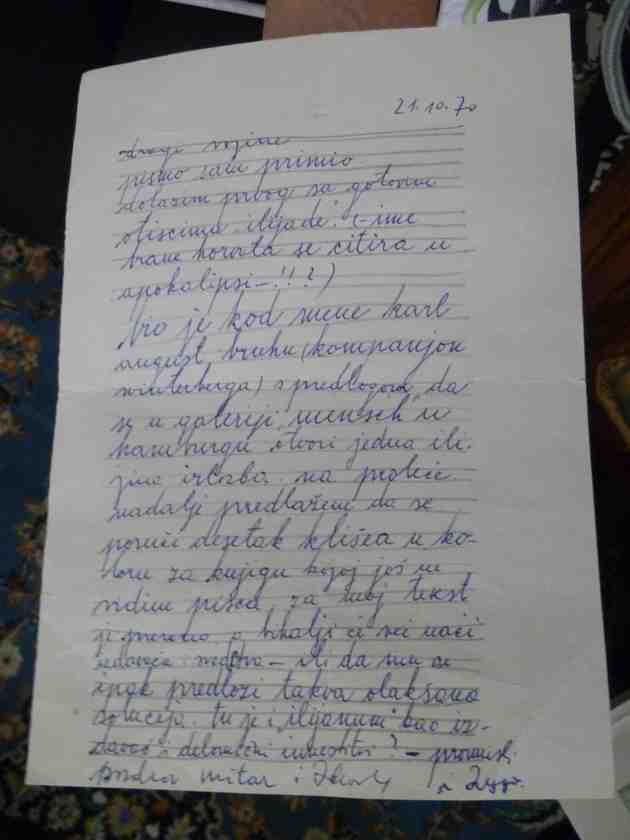 21.10.70
dragi vojine
pismo sam primio
dolazim prvog sa gotovim
otiscima "ilijade". (ime
brane horvata se citira u
apokalipsi–!!?)
bio je kod mene karl
august bruhn (kompanjon
winterberga) s predlogom da
se u galeriji "mensch" u
hamburgu otvori jedna ili-
jina izložba na proleće.
nadalje predlažem da se
poruči desetak klišea u ko-
loru za knjigu kojoj još ne
vidim pisca. za moj tekst
je a bihalji će već naći
– ili da mu se
ipak predloži takva olakšana
solucija. tu je i "ilijanum" kao iz-
davač i delomični investitor? –
pozdrav mitar i